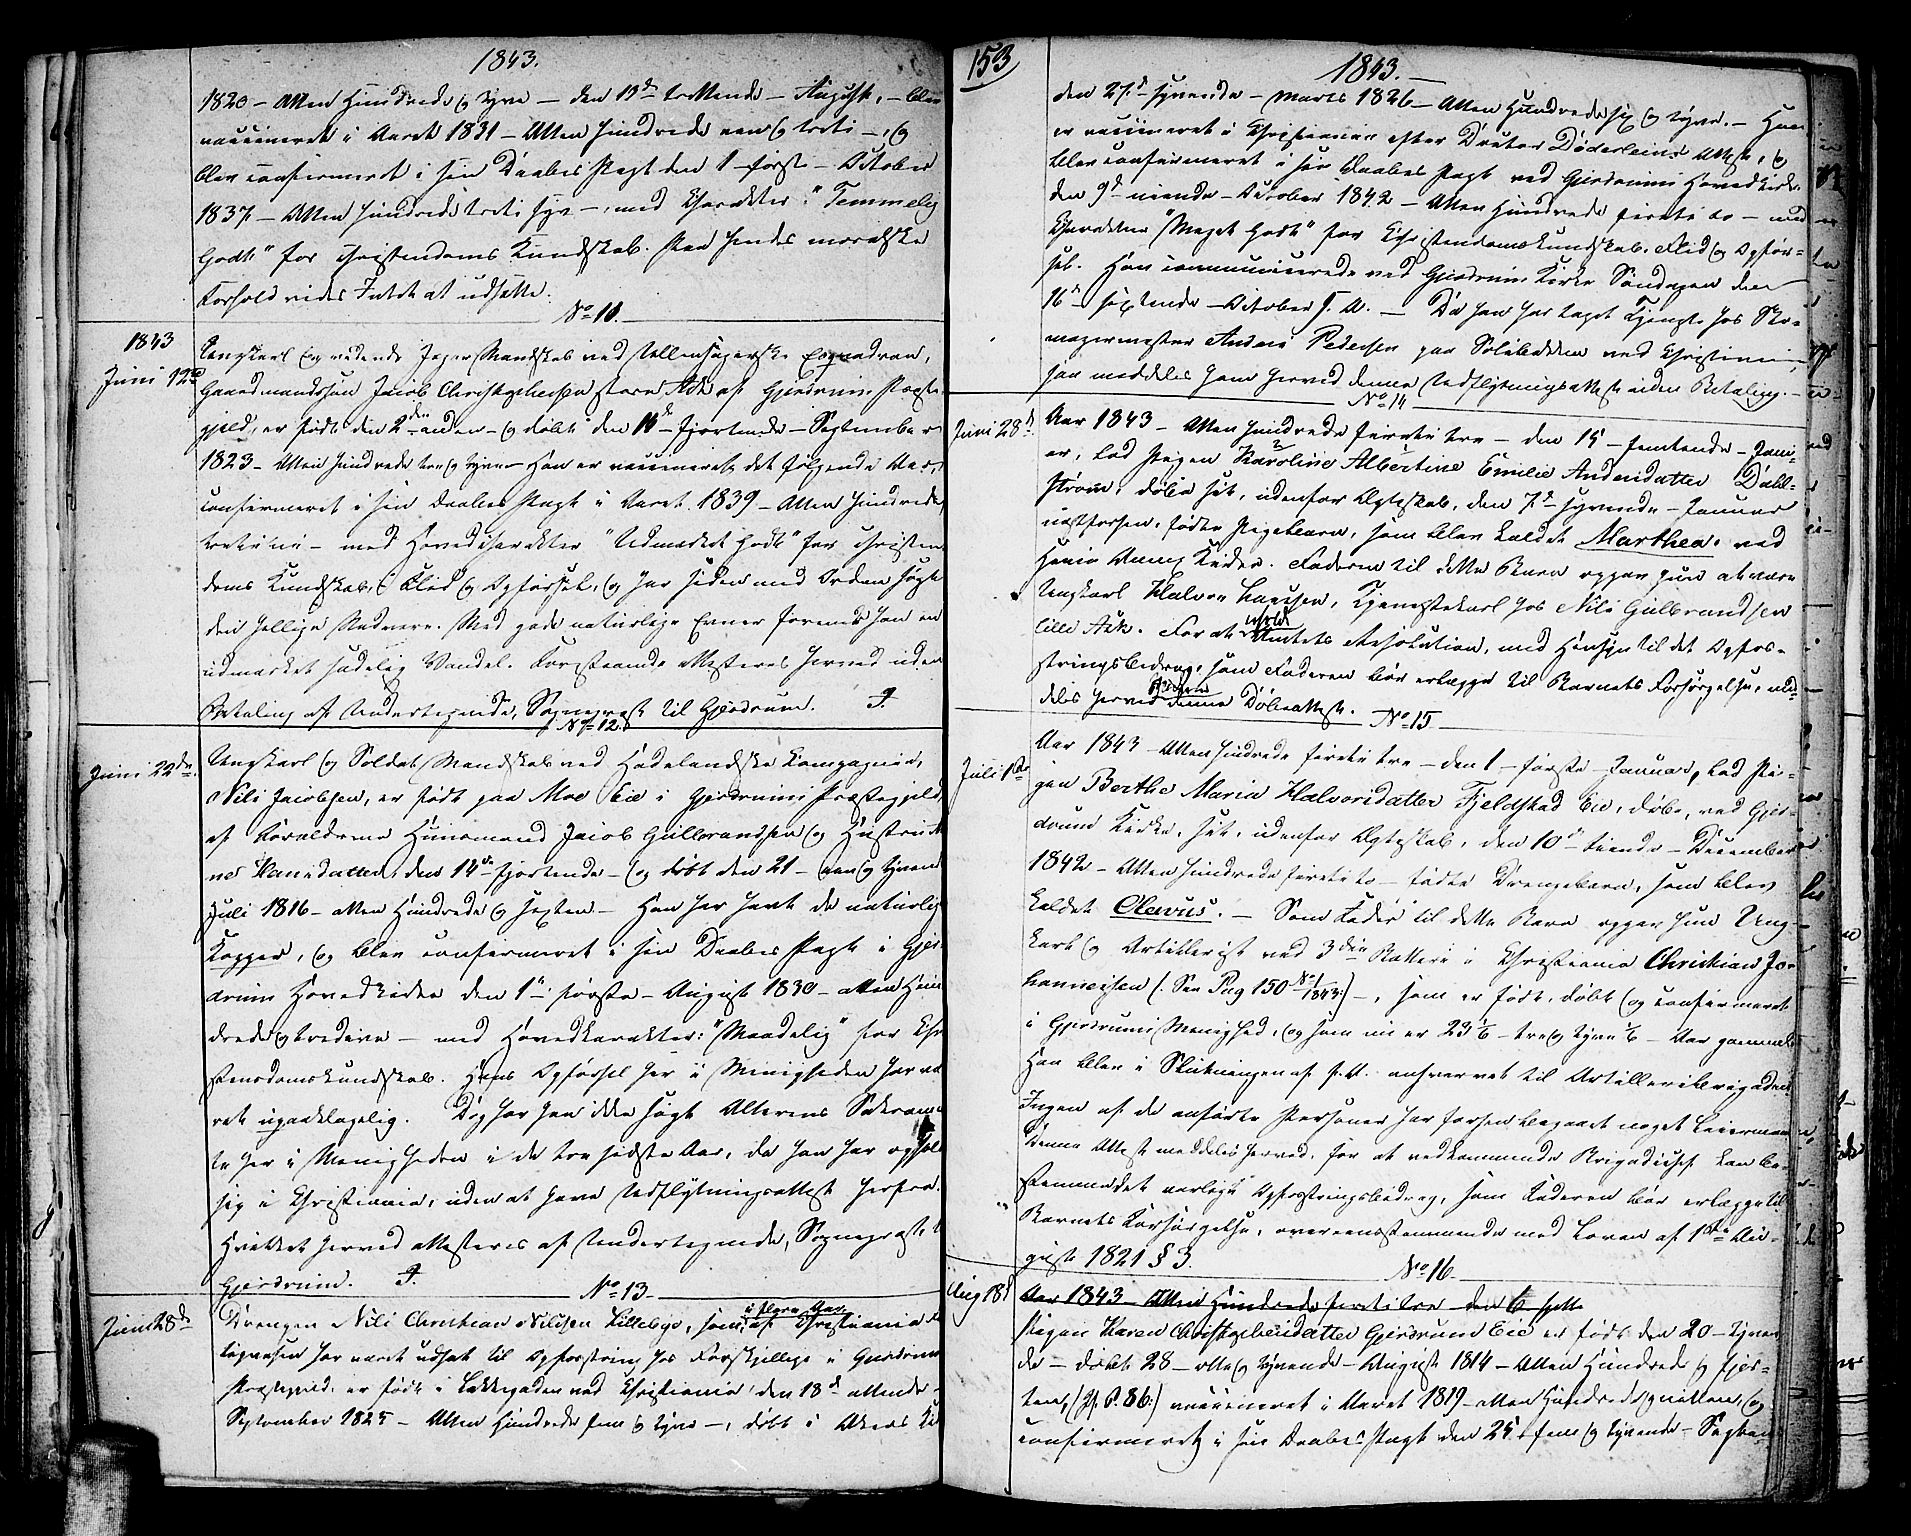 1843.
1820 – Atten Hundrede og tyve – den 13de trettende – August, – blev
vaccineret i Aaret 1831 – Atten Hundrede een og treti –, og
blev confirmeret i sin Daabes Pagt den 1 – første – October
1837 – Atten Hundrede treti syv –, med Charakter: "Temmelig
Godt" for Christendoms Kundskab. Paa hendes moralske
Forhold vides Intet at udsætte.
No 11.
1843
Juni 12te
Ungkarl og ridende Jæger Mandskab ved Ullensagerske Esquadron,
Gaardmandssøn Jacob Christophersen store Ask af Gjerdrums Præste-
gjeld, er født den 2den anden – og døbt den 14de fjortende – September
1823 – Atten Hundrede tre og tyve – Han er vaccineret det følgende Aar,
confirmeret i sin Daabes Pagt i Aaret 1839 – Atten Hundrede
treti ni – med Hovedcharakter "Udmærket Godt" for Christen-
doms Kundskab, Flid og Opførsel, og har siden med Orden søgt
den hellige Nadvere. Med gode naturlige Evner forener han en
udmærket sædelig Vandel. Foranstaaende attesteres herved uden
Betaling af Undertegnede, Sognepræst til Gjerdrum.
No 12.
Juni 22de
Ungkarl og Soldat Mandskab ved Hadelandske Kompagnie,
Nils Jacobsen, er født paa Moe Eie i Gjerdrums Præstegjeld
af Forældrene Huusmand Jacob Gulbrandsen og Hustru
Hansdatter, den 14de fjortende – og døbt den 21 – een og tyvende
Juli 1816 – atten Hundrede og sexten – Han har havt de naturlige
Kopper, og blev confirmeret i sin Daabes Pagt i Gjer-
drum Hovedkirke den 1te første – August 1830 – atten Hun-
drede og tredive – med Hovedkarakter: "Maadelig" for Chri-
stendomskundskab. Hans Opførsel her i Menigheden har væ-
ret upaaklagelig. Dog har han ikke søgt Alterens Sakramen-
te her i Menigheden i de tre sidste Aar, da han har opholdt
sig i Christiania, uden at have Udflytningsattest herfra.
Hvilket herved attesteres af Undertegnede, Sognepræst til
Gjerdrum.
No 13
Juni 28de
Drengen Nils Christian Nilsen Lillebye, som i flere Aar af Christiania
har været udsat til Opfostring hos Forskjellige i Gjerdrum
Præstegjeld, er født i Lakkegaden ved Christiania den 18de attende –
September 1825 – Atten Hundrede fem og tyve –, døbt i Akers
153
1843.
den 27de syvende – Marts 1826 – Atten Hundrede sex og tyve. – Han
er vaccineret i Christiania efter Doctor Døderleins Attest, og
blev confirmeret i sin Daabes Pagt ved Gjerdrums Hovedkirke
den 9de niende – October 1842 – Atten Hundrede firti to – med
Charakter "Meget Godt" for Christendomskundskab, Flid og Opfør-
sel. Han communicerede ved Gjerdrums Kirke Søndagen den
16de sextende – October s. A. – Da han har taget Tjeneste hos Sko-
magermester Anders Pedersen paa ved Christiania,
saa meddeles ham herved denne Udflytningsattest uden Betaling. –
No 14
Juni 28de
Aar 1843 – Atten Hundrede firti tre – den 15 – femtende – Janu-
ar, lod Pigen Karoline Albertine Emilie Andersdatter Dahl-
strøm, døbe sit, udenfor Ægteskab, den 7de syvende – Januar
næstforhen, fødte Pigebarn, som blev kaldet Marthea, ved
Heni Annex Kirke. Faderen til dette Barn opgav hun at være
Ungkarl Halvor Larsen, Tjenestekarl hos Nils Gulbrandsen
lille Ask. For at Amtets Resolution, med Hensyn til det Opfo-
stringsbidrag, som Faderen bør erlægge til Barnets Forsørgelse, med-
deles herved denne Døbeattest.
No 15
Juli 1te
Aar 1843 – Atten Hundrede firti tre – den 1 – første – Januar, lod Pi-
gen Berthe Maria Halvorsdatter Fjeldstad Eie, døbe, ved Gjer-
drum Kirke, sit, udenfor Ægteskab, den 10de tiende – December
1842 – Atten Hundrede firti to – fødte Drengebarn, som blev
kaldet Olavus. – Som Fader til dette Barn opgav hun Ung-
karl og Artillerist ved 3die Batteri i Christiania Christian Jo-
hannesen (: See Pag 150 No 1/1843:) –, som er født, døbt og confirmeret
i Gjerdrums Menighed, og som nu er 23 1/6 – tre og tyve 1/6 – Aar gammel.
Han blev i Slutningen af f. A. anhvervet til Artilleribrigaden.
Ingen af de anførte Personer har forhen begaaet noget Leiermaal.
Denne Attest meddeles herved, for at vedkommende Brigadechef kan be-
stemme det aarlige Opfostringsbidrag, som Faderen bør erlægge til
Barnets Forsørgelse, overeensstemmende med Loven af 1ste Au-
gust 1821 § 3.
No 16
Aug 18d
Aar 1843 – Atten Hundrede firti tre – den 6 sjette
Pigen Karen Christophersdatter Gjerdrum Eie er født den 20 – tyven-
de – døbt 28 – otte og tyvende – August 1814 – Atten Hundrede og fjor-
ten, (Pag. 86:) vaccineret i Aaret 1819 – atten Hundrede og nitten, og
confirmeret i sin Daabes Pagt den 25 – fem og tyvende – Septem-